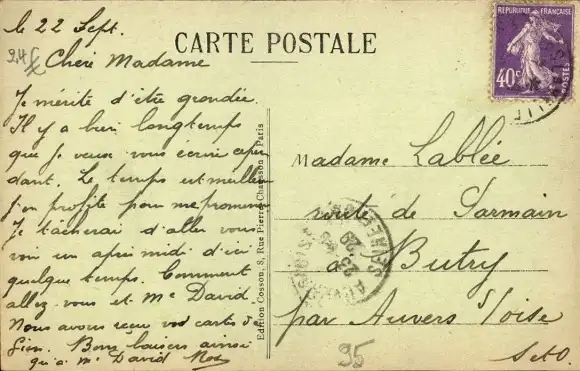 le 22 Sept.
CARTE POSTALE
Chère Madame
Je mérite d'être grondée.
Il y a bien longtemps
que je veux vous écrire cepen
dant. Le temps est meilleur
j'en profite pour me promener
Je tâcherai d'aller vous
voir un après midi d'ici
quelque temps. Comment
allez vous et Me David
Nous avons reçu vos cartes de
Gien. Bons baisers ainsi
qu'à Me David
Edition Cosson, 8, Rue Pierre Chausson - Paris
REPUBLIQUE FRANÇAISE
40c
POSTES
Madame Lablée
route de Parmain
Butry
par Auvers s/oise
S et O.
95